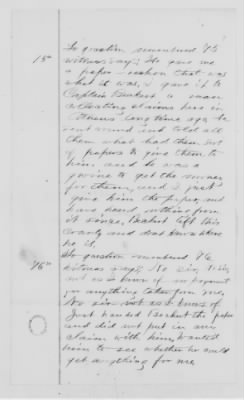 15th
To question numbered 15
witness says: He gave me
a paper - that was
what it was, I gave it to
Captain a man
collecting claims here in
Athens long time ago he
sent around and told all
them what had them sort
of papers to give them to
him and he was a
gwine to get the money
for them, and I just
give him the paper and
have heard nothing from
it since, left this
County and dont know where
he is.
16th
To question numbered 16
witness says: No sir,
not as I know of no payment
for anything taken from me,
No sir not as I knows of
Just handed the paper
and did not put in any
claim with him, wanted
him to see whether he could
get anything for me